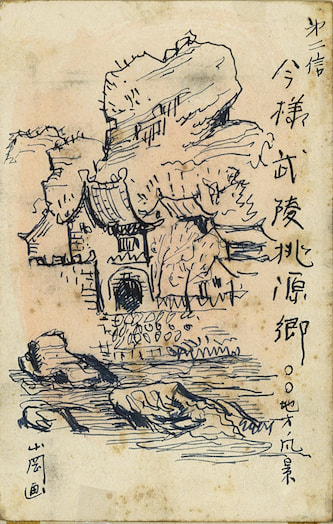 第二信
今様武陵桃源郷
〇〇地方ノ風景
山岡画